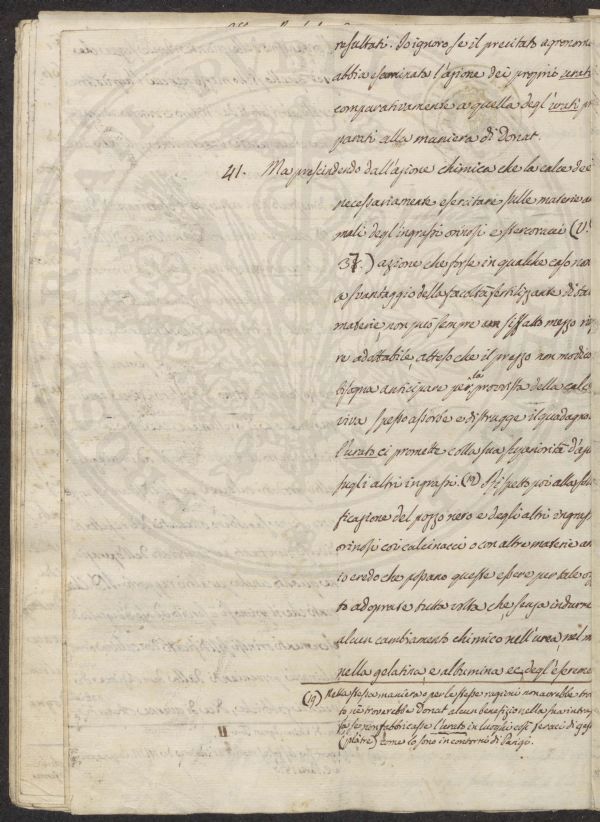 resultati. Io ignoro se il precitato agronomo
abbia esaminato l'azione dei proprii urati
comparativamente a quella degl'urati pr
parati alla maniera di Donat.
41. Ma prescindendo dall'azione chimica che la calce dee
necessariamente esercitare sulle materie a
mali degl'ingrassi orinosi e stercoracei (V.
37.) azione che forse in qualche caso non
a svantaggio della facoltà fertilizzante di ta
materie, non può sempre un siffatto mezzo
re adottabile, atteso che il prezzo non modico
bisogna anticipare per la provvista della calce
viva spesso assorbe e distrugge il guadagno
l'urato ci promette colla sua superiorità d'az
sugli altri ingrassi. (19) Rispetto poi alla soli
ficazione del pozzo nero e degli altri ingrass
orinosi coi calcinacci o con altre materie an
io credo che possano queste essere per tale og
to adoprate tutta volta che, senza indurre
alcun cambiamento chimico nell'urea, nel m
nella gelatina e albumina ec. degl'escreme
(19) Nella stessa maniera e per le stesse ragioni non avrebbe tro
to nè troverebbe Donat alcun benefizio nella sua intrap
sa se non fabbricasse l'urato in luoghi così feraci di ges
(plâtre) come lo sono i contorni di Parigi.